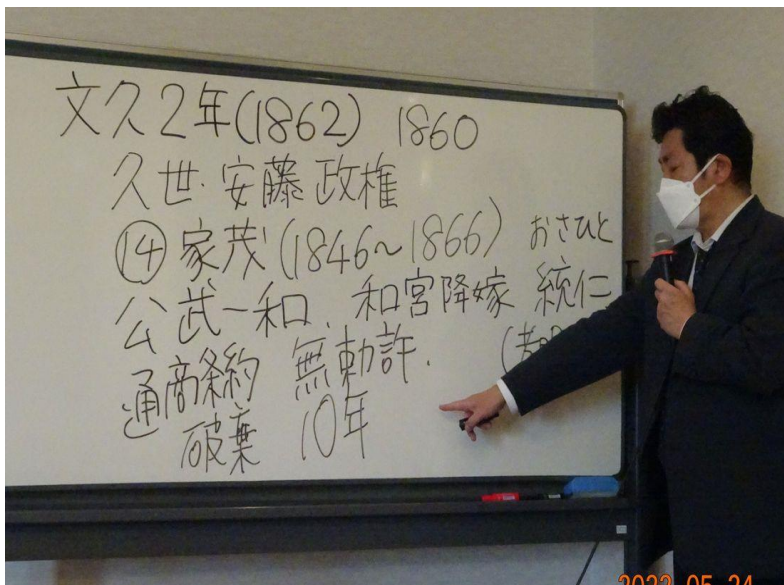 文久2年(1862) 1860
久世.安藤政権
⑭家茂(1846~1866) おさひと
公武一和、和宮降嫁 統仁
通商条約 無勅許.
破棄 10年